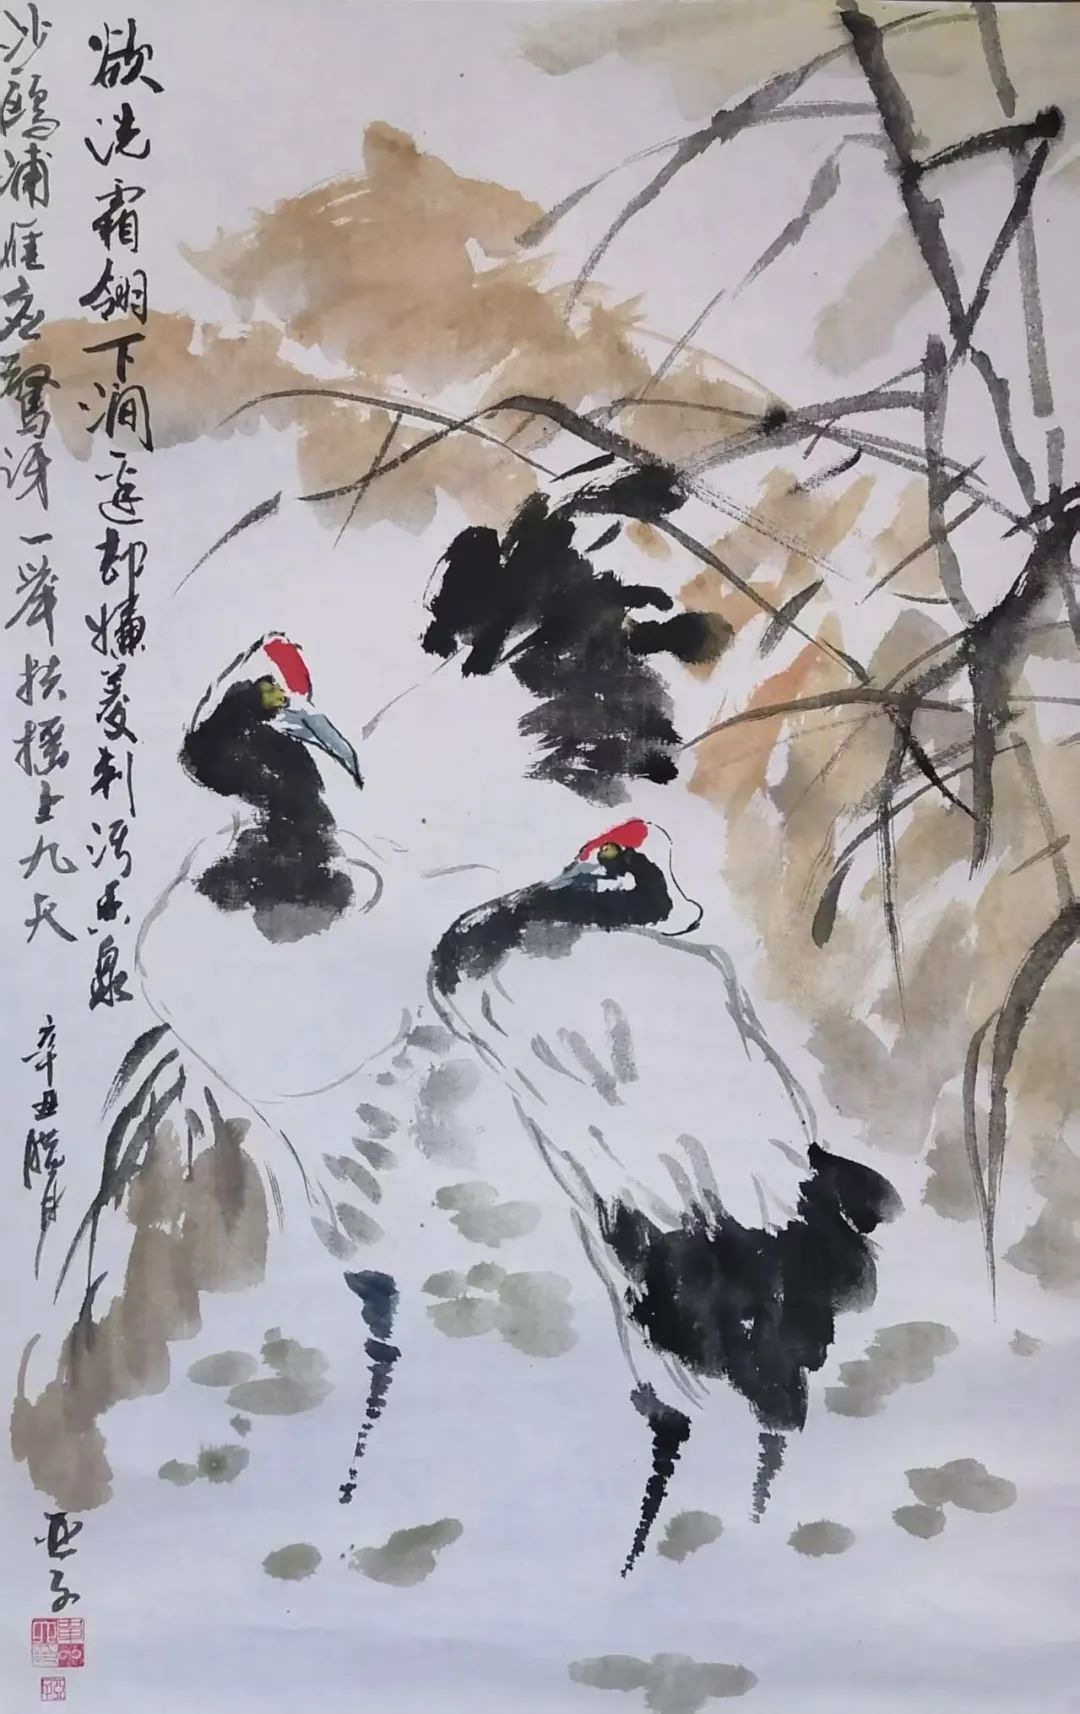 欲洗霜翎下涧边却嫌菱刺污香泉
沙鸥浦雁应惊讶一举扶摇上九天
辛丑腊月
亚子